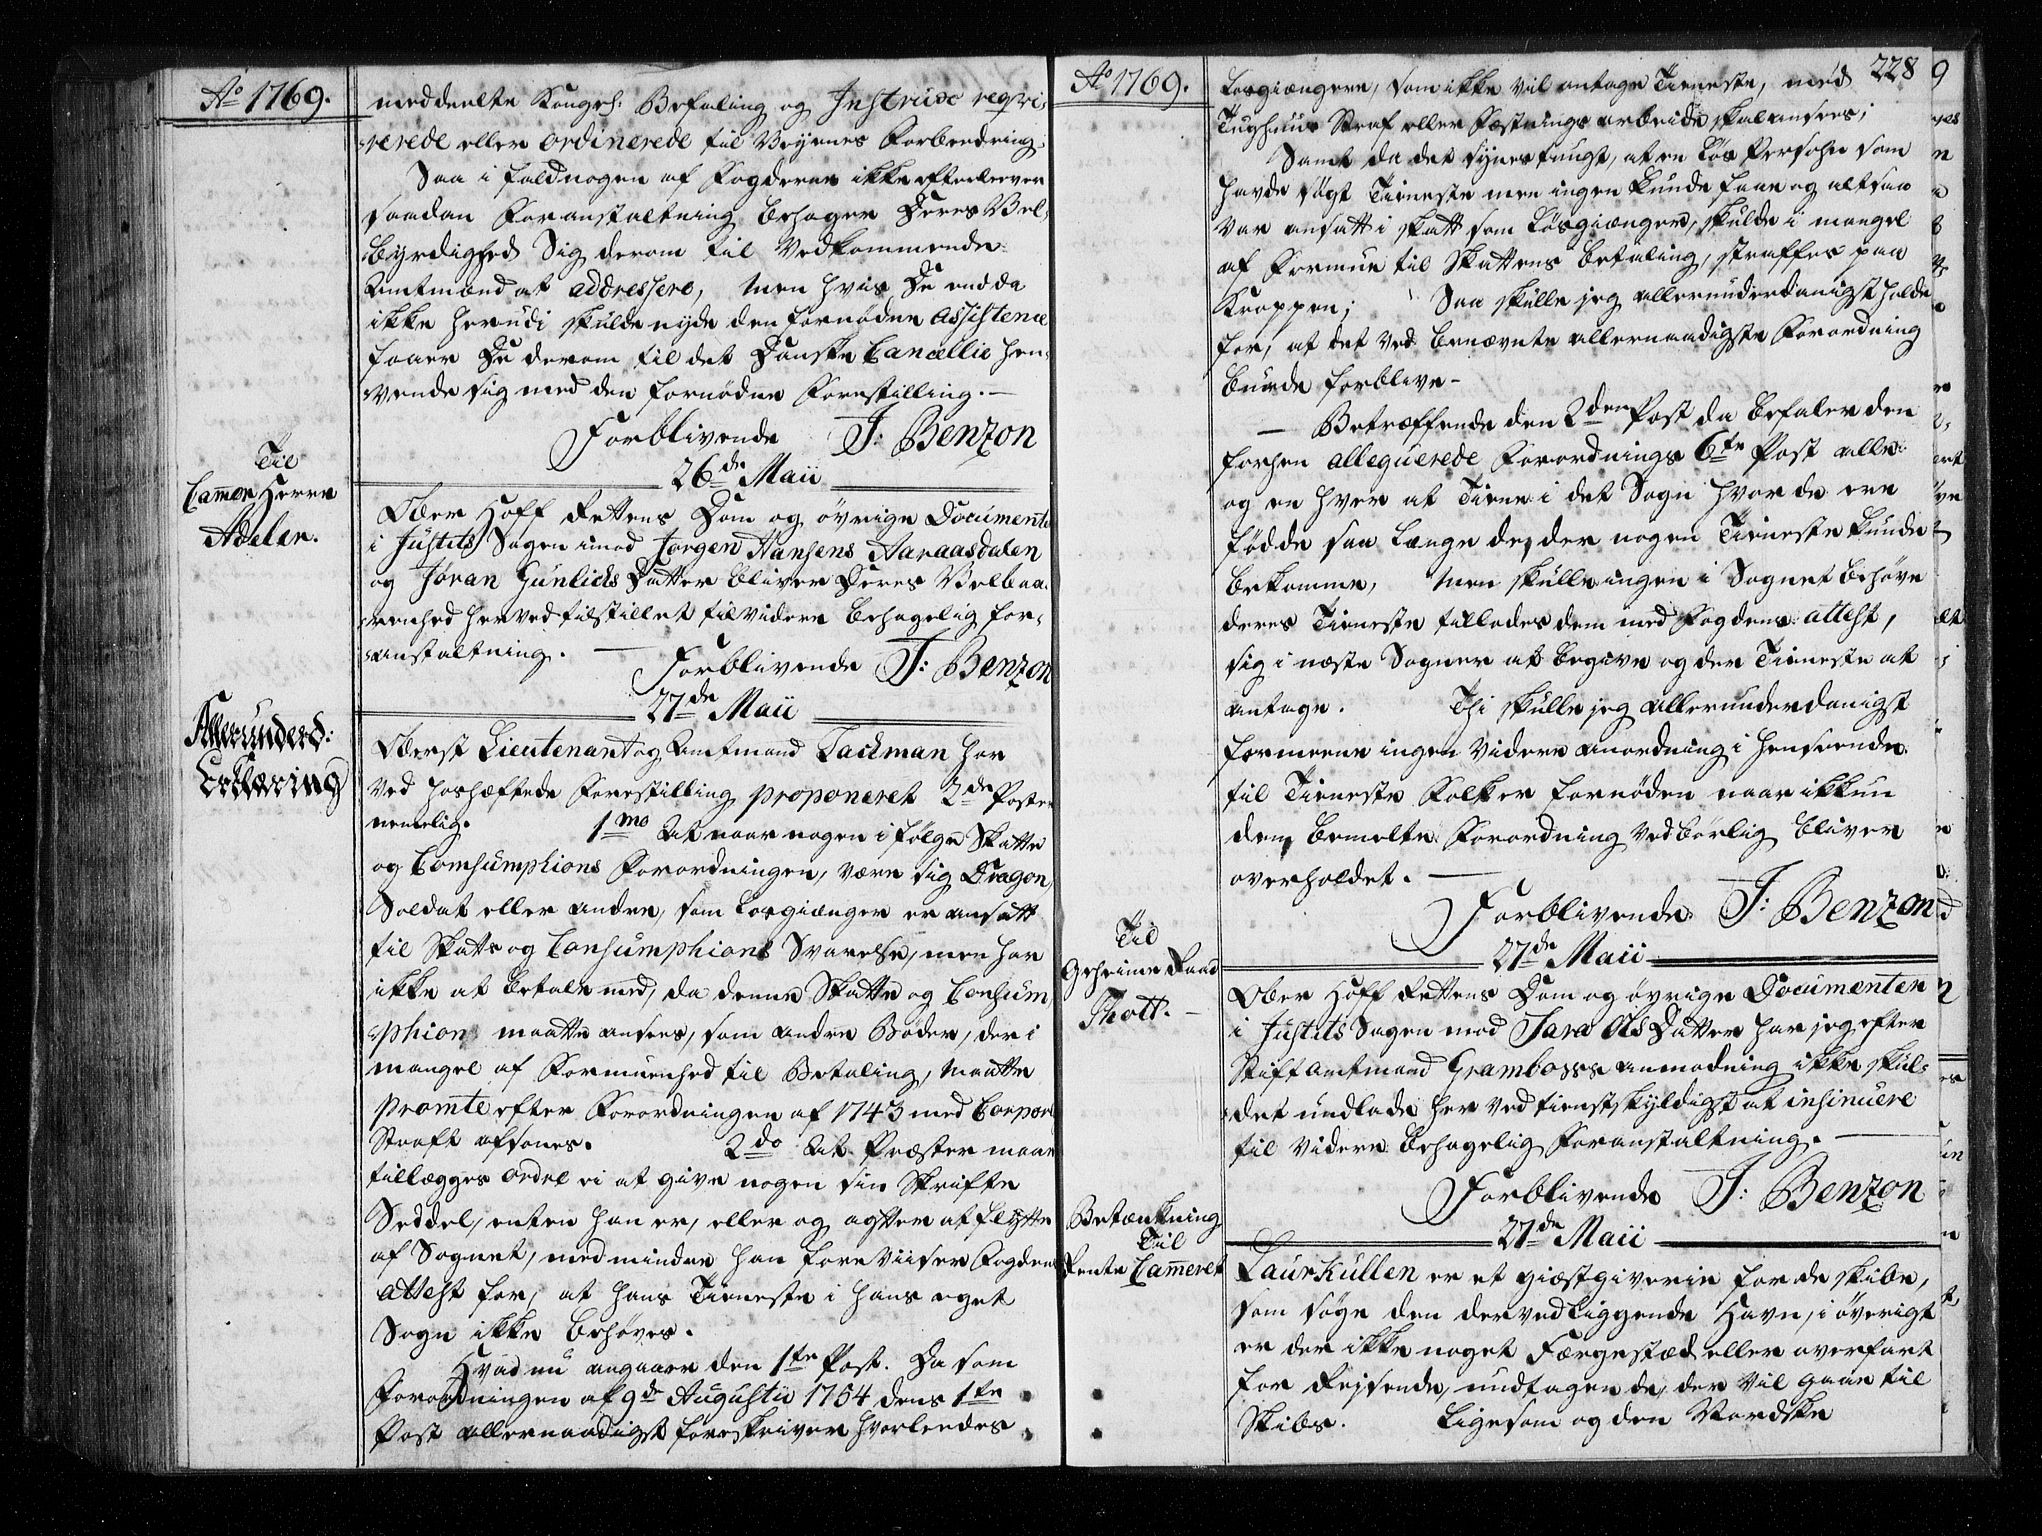 Ao 1769.
meddeelte Kongel: Befaling og Instrux reqvi-
rerede eller ordinerede til Veyenes Forbedring,
Saa i fald nogen af Fogderne ikke efterlever
saadan Foranstaltning behager Deres Vel-
byrdighed Sig derom til Vedkommende
Amtmænd at addressere, Men hvis De endda
ikke herudi skulde nyde den fornødne Assistence
faaer De derom til det Danske Cancellie hen-
vende sig med den fornødne Forestilling. —
Forblivende J: Benzon
26de Maii
Til
Cammer Herre
Adeler.
Ober Hoff Rettens Dom og øvrige Documenter
i Justits Sagen imod Jørgen Hansens Aaraasdalen
og Jøran Gunlichs Datter bliver Deres Velbaa-
renhed herved tilstillet til videre behagelig for-
anstaltning. —
Forblivende J: Benzon
27de Maii
Allerunderd:
Erklæring
Oberst Lieutenant og Amtmand Lachman har
ved hoshæftede Forestilling proponeret 2de Poster
nemelig. 1mo At naar nogen i følge Skatte
og Comsumptions Forordningen, være sig Dragon,
Soldat eller andre, som Løsgiænger er ansatt
til Skatts og Consumphions Svarelse, men har
ikke at betale med, da denne Skatte og Consum-
phion maatte ansees, som andre Bøder, der i
mangel af Formuenhed til Betaling, maatte
promte efter Forordningen af 1743 med Corporl
Straff afsones. 2do At Præster maae
tillægges ordre ei at give nogen sin Skrifte
Seddel, enten han er, eller og agter at flytte
af Sognet, med mindre han foreviiser Fogdens
Attest for, at hans Tieneste i hans eget
Sogn ikke behøves.
Hvad nu angaaer den 1te Post. Da som
Forordningen af 9de Augustii 1754 dens 1te
Post allernaadigst foreskriver hvorledes
Ao 1769.
228
Løsgiængere, som ikke vil antage Tieneste, med
Tughuus Straf eller Fæstnings arbeide skal ansees;
Samt da det synes tungt, at en løs Persohn som
havde søgt Tieneste men ingen kunde faae og altsaa
var ansatt i skatt som Løsgiænger, skulde i mangel
af Formue til Skattens betaling, straffes paa
Kroppen; Saa skulle jeg allerunderdanigst holde
for, at det ved benævnte allernaadigste Forordning
burde forblive -
— Betræffende den 2den Post da befaler den
forhen alleguerede Forordnings 6te Post alle
og en hver at Tiene i det Sogn hvor de ere
fødde saa længe de der nogen Tieneste kunde
bekomme, Men skulle ingen i Sognet behøve
deres Tieneste tillades dem med Fogdens attest,
sig i næste Sogner at begive og der Tieneste at
antage. Thi skulle jeg allerunderdanigst
formeene ingen videre anordning i henseende
til Tieneste Folk er fornøden naar ikkun
den bemelte Forordning vedbørlig bliver
overholdet. —
Forblivende J: Benzon
27de Maii
Til
Geheime Raad
Thott. —
Ober Hoff Rettens Dom og øvrige Documenter
i Justits Sagen mod Sara Ols Datter har jeg efter
Stiftamtmand Grambows anmodning ikke skul-
det undlade herved tienstskyldigst at insinuere
til videre behagelig Foranstaltning. —
Forblivende J: Benzon
27de Maii
Betænkning
Til
Rente Cammeret
Laurkullen er et giæstgiverie for de skibe,
som søge den derved liggende Havn, i øvrigt
er der ikke noget Færgestæd eller overfart
for Reisende, undtagen de, der vil gaae til
Skibs. Ligesom og den Nordske